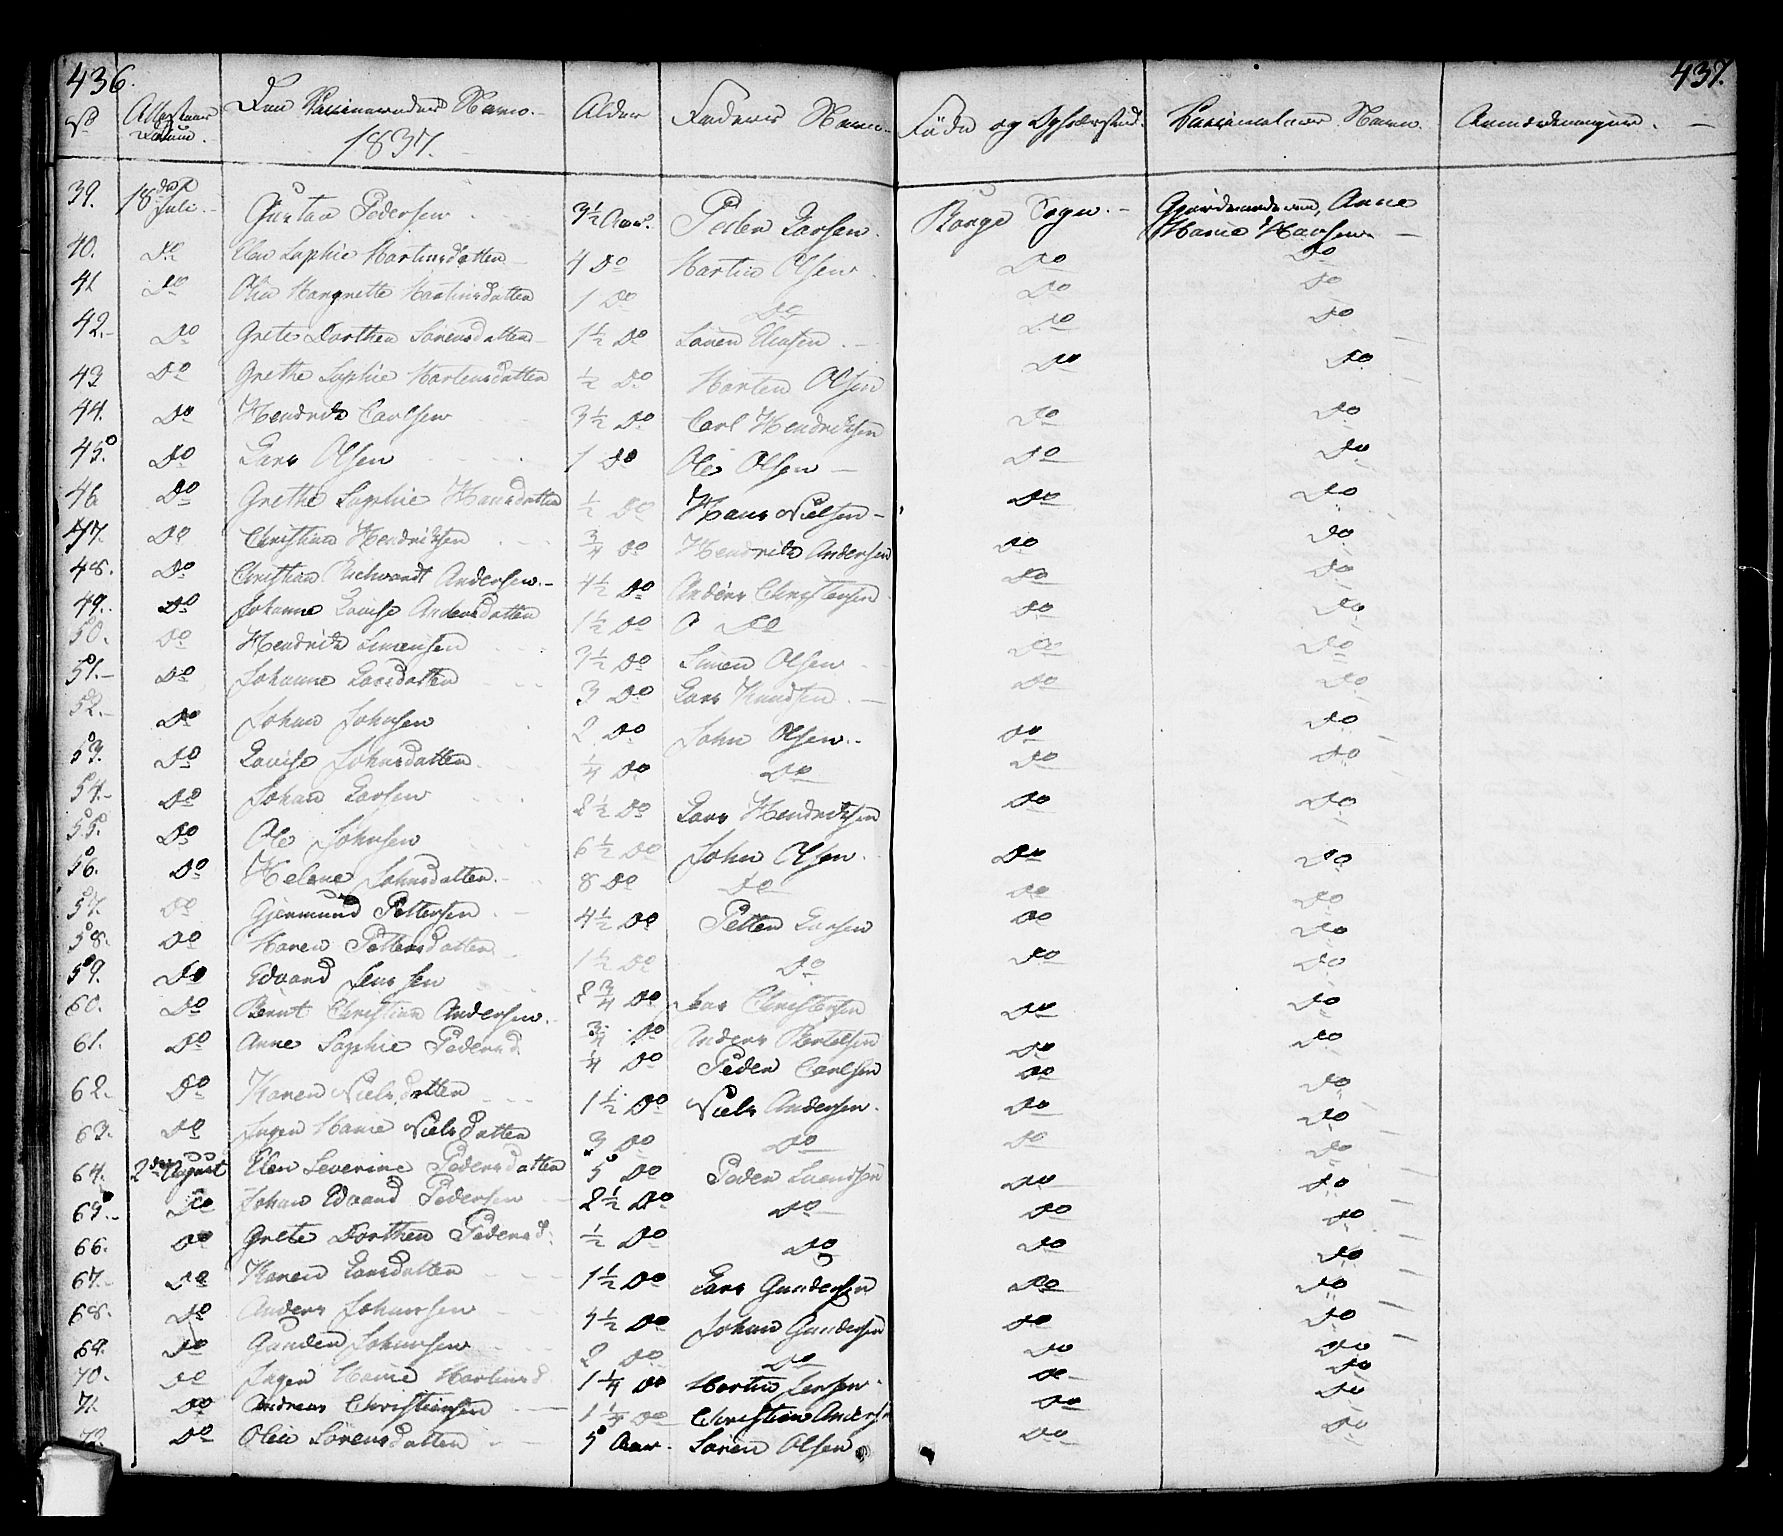 436. 437.
No Attestens Datum. Den Vaccineredes Navn. Alder Faders Navn. Føde og Opholdssted. Vaccinateur Navn. Anmærkninger.
1837.
39. 18de Juli. Gustav Pedersen 3½ Aar. Peder Larsen. Borge Sogn. Gjordemoderen, Anne Marie Hansen
40. Do Elen Sophie Martinsdatter 4 Do Martin Olsen. Do Do
41 Do Olia Margrethe Martinsdatter 1 Do Do Do Do
42. Do Grete Dorthea Sörensdatter 1½ Do Sören Do Do
43 Do Grethe Sophie Mortensdatter ½ Do Morten Olsen Do Do
44. Do Hendrik Carlsen 3½ Do Carl Hendriksen Do Do
45. Do Lars Olsen 1 Do Ole Olsen Do Do
46 Do Grethe Sophie Hansdatter ½ Do Hans Nielsen Do Do
47. Do Christian Hendriksen ¾ Do Hendrik Andersen Do Do
48. Do Christian Andersen. 4½ Do Anders Christensen Do Do
49. Do Johanne Lovise Andersdatter 1½ Do Do Do Do
50. Do Hendrik Simensen 3½ Do Simen Olsen Do Do
51. Do Johanne Larsdatter 3 Do Lars Knudsen. Do Do
52. Do Johan Johnsen 2 Do John Olsen. Do Do
53. Do Lovise Johnsdatter. ¼ Do Do Do Do
54. Do Johan Larsen 2½ Do Lars Hendriksen Do Do
55. Do Ole Johnsen 6½ Do John Olsen. Do Do
56. Do Helene Johnsdatter. 8 Do Do Do Do
57. Do Gjermund Pettersen 4½ Do Petter Larsen Do Do
58. Do Maren Pettersdatter 1½ Do Do Do Do
59. Do Edvard Jenssen 2¾ Do Jens Christensen Do Do
60. Do Bernt Christian Andersen. ¾ Do Anders Bertelsen Do Do
61. Do Anne Sophie Pedersd. ¼ Do Peder Carlsen Do Do
62. Do Maren Nielsdatter 1½ Do Niels Andersen. Do Do
63. Do Inger Marie Nielsdatter 3 Do Do Do Do
64. 2den August Elen Severine Pedersdatter 5 Do Peder Svendsen Do Do
65. Do Johan Edvard Pedersen 2½ Do Do Do Do
66. Do Grete Dorthea Pedersd. ½ Do Do Do Do
67. Do Maren Larsdatter 1½ Do Lars Gundersen Do Do
68. Do Anders Johannsen 4½ Do Johan Gundersen Do Do
69. Do Gunder Johannsen 2 Do Do Do Do
70. Do Inger Marie Martinsd. 1¼ Do Martin Jensen Do Do
71. Do Andreas Christiansen 1¼ Do Christian Anders Do Do
72. Do Olia Sörensdatter 5 Aar. Sören Olsen Do Do